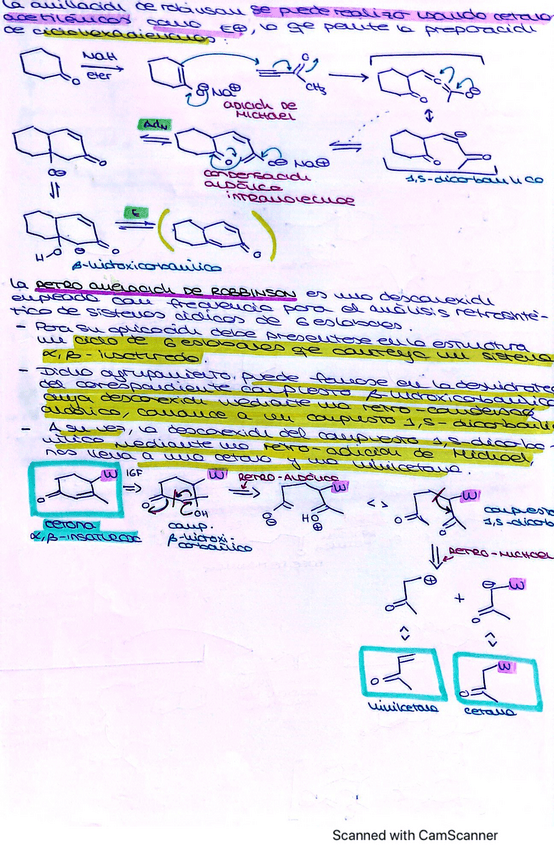 La anillación de robinson se puede realizar usando cetonas
acetilénicas como E⊕, lo que permite la preparación
de ciclohexadienonas:
NaH
eter
O
O⊖ Na⊕
O
CH₃
O⊖
ADICIÓN DE
MICHAEL
AdN
O
O
O⊖ Na⊕
O
O
O⊖
CONDENSACIÓN
ALDÓLICA
INTRAMOLECULAR
1,5-dicarbonílico
E
H-O
O
O
β-hidroxicarbonílico
La RETRO ANELACIÓN DE ROBBINSON es una desconexión
empleada con frecuencia para el análisis retrosinté-
tico de sistemas cíclicos de 6 eslabones.
- Para su aplicación debe presentarse en la estructura
un ciclo de 6 eslabones que contenga un sistema
α,β-insaturado.
- Dicho agrupamiento, puede formarse en la deshidrata
del correspondiente compuesto β-hidroxicarbonílico
cuya desconexión mediante una retro-condensac
aldólica, conduce a un compuesto 1,5-dicarbonílic
- A su vez, la desconexión del compuesto 1,5-dicarbo-
nílico mediante una retro-adición de Michael,
nos lleva a una cetona y una vinilcetona.
W
IGF
W
RETRO-ALDÓLICA
W
<>
W
O
O
OH
O
HO
⊕
O
O
cetona
α,β-insaturada
comp.
β-hidroxi-
carbonílico
compuesto
1,5-dicarb
RETRO-MICHAEL
⊕
+
⊖
W
O
O
O
W
O
vinilcetona
cetona
Scanned with CamScanner